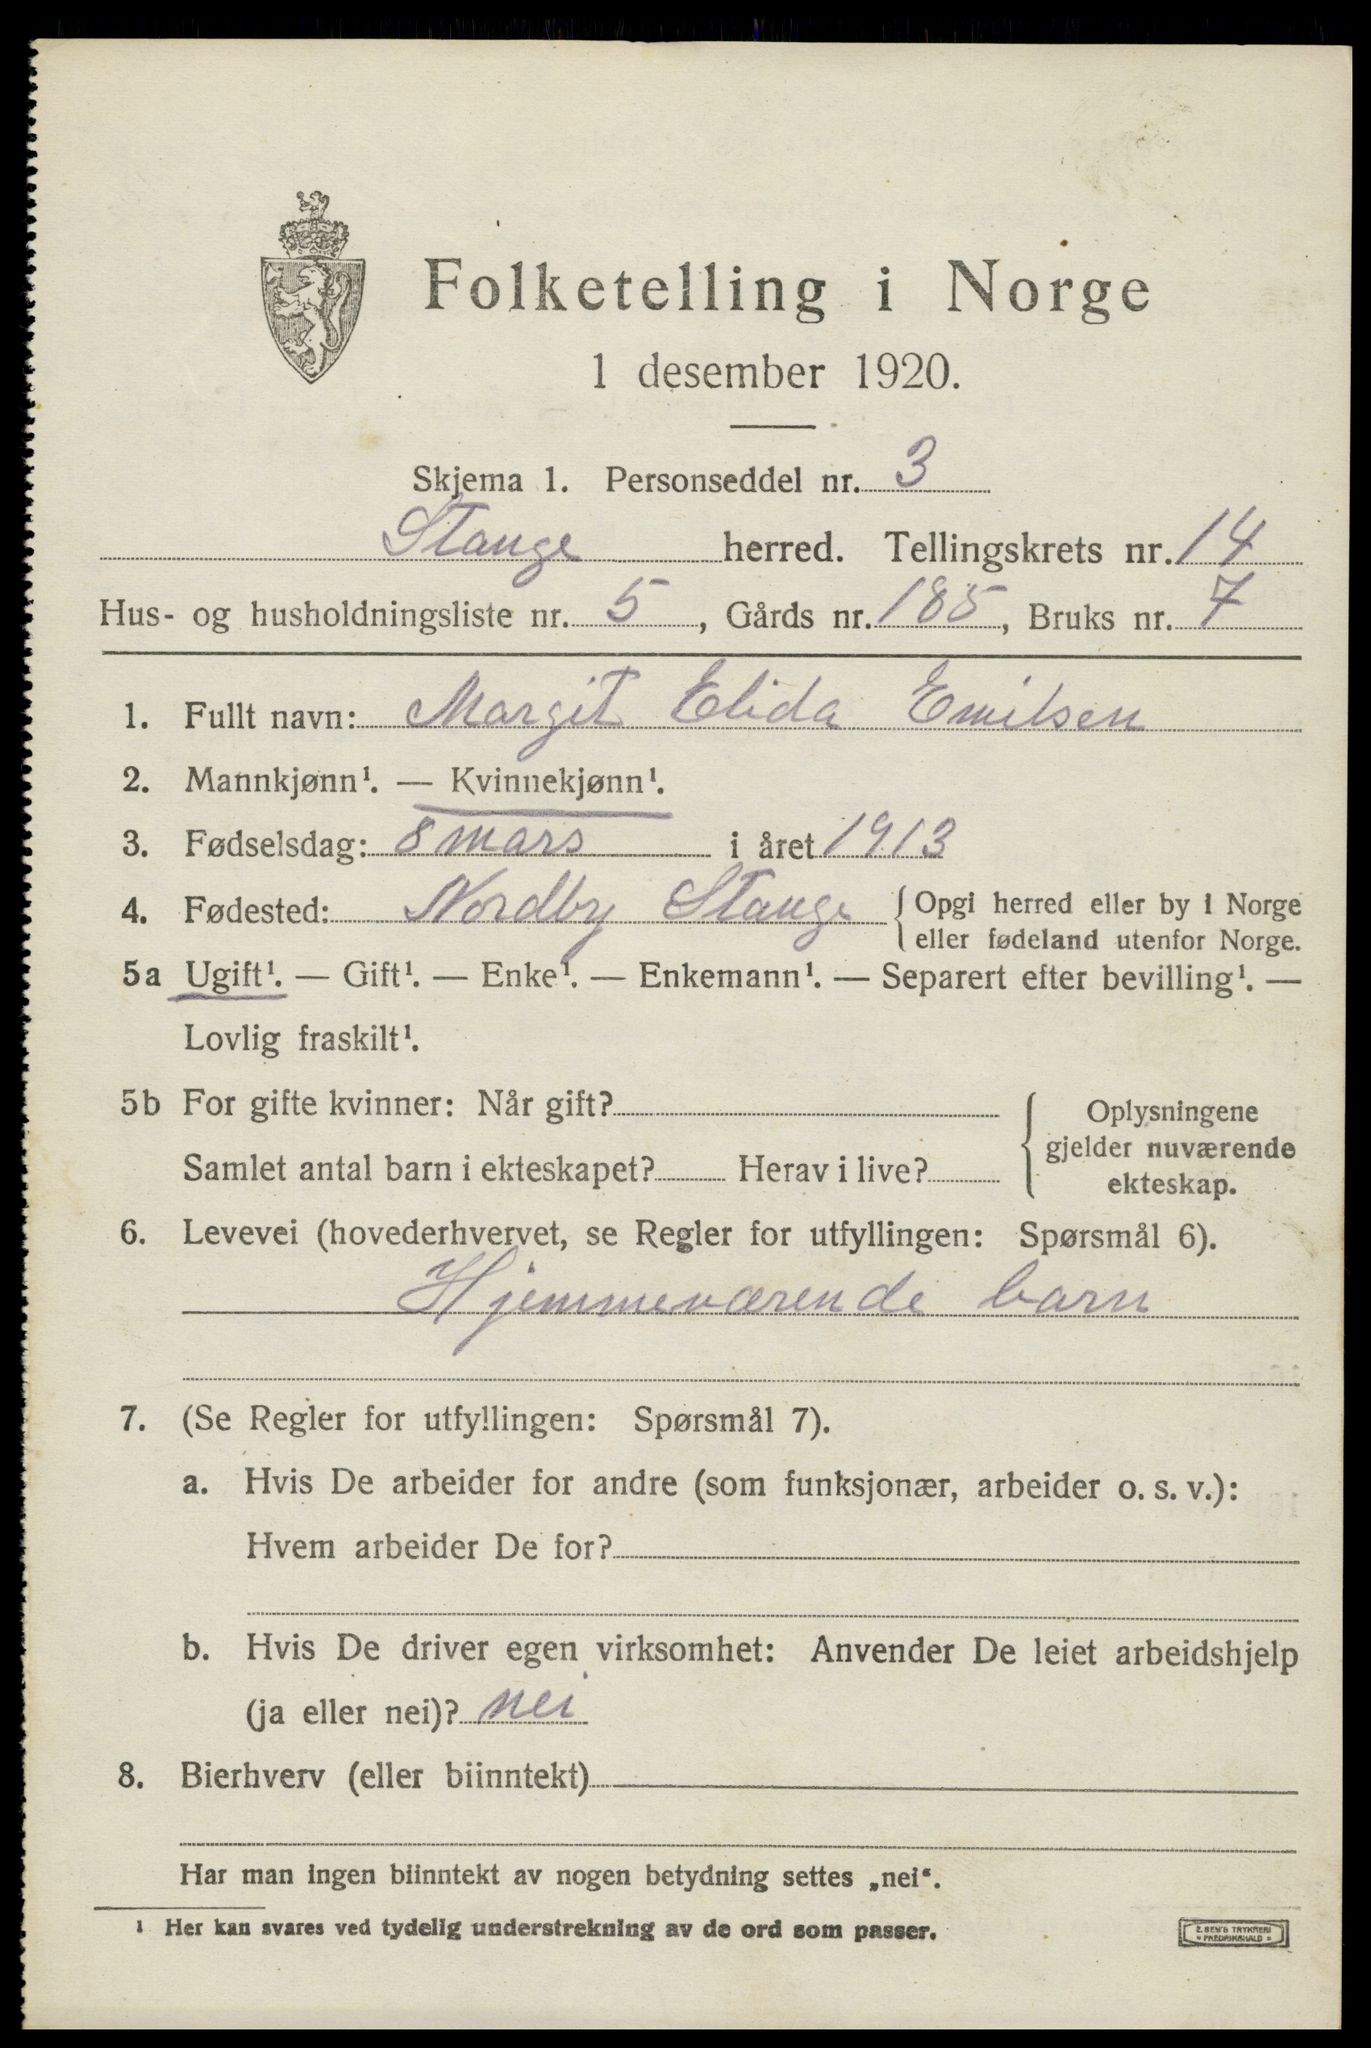 Folketelling i Norge
1 desember 1920.
Skjema 1. Personseddel nr. 3
Stange herred. Tellingskrets nr. 14
Hus- og husholdningsliste nr. 5, Gårds nr. 185, Bruks nr. 7
1. Fullt navn: Margit Elida Emilsen
2. Mannkjønn¹. — Kvinnekjønn¹.
3. Fødselsdag: 8 mars i året 1913
4. Fødested: Nordby Stange { Opgi herred eller by i Norge
eller fødeland utenfor Norge.
5a Ugift¹. — Gift¹. — Enke¹. — Enkemann¹. — Separert efter bevilling¹. —
Lovlig fraskilt¹.
5b For gifte kvinner: Når gift?
Samlet antal barn i ekteskapet? Herav i live?
Oplysningene
gjelder nuværende
ekteskap.
6. Levevei (hovederhvervet, se Regler for utfyllingen: Spørsmål 6).
Hjemmeværende barn
7. (Se Regler for utfyllingen: Spørsmål 7).
a. Hvis De arbeider for andre (som funksjonær, arbeider o. s. v.):
Hvem arbeider De for?
b. Hvis De driver egen virksomhet: Anvender De leiet arbeidshjelp
(ja eller nei)? nei
8. Bierhverv (eller biinntekt)
Har man ingen biinntekt av nogen betydning settes „nei“.
¹ Her kan svares ved tydelig understrekning av de ord som passer.
E. SEM'S TRYKKERI
FREDRIKSHALD